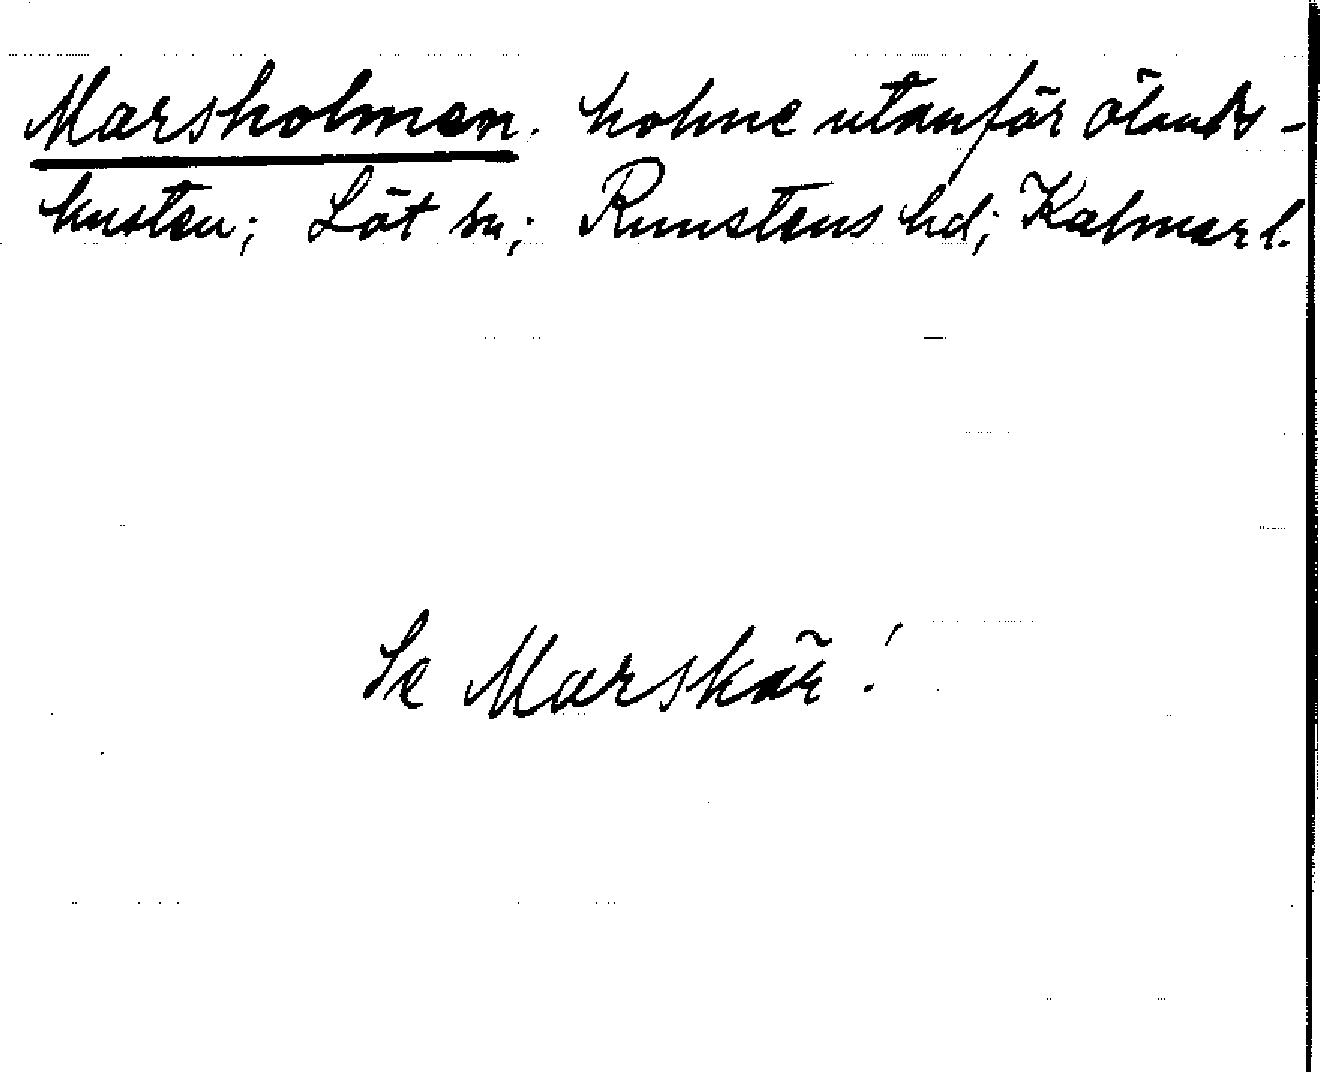 Marsholmen. holme utanför ölands-
kusten; Löt sn; Runstens hd; Kalmar l.
Se Marskär!